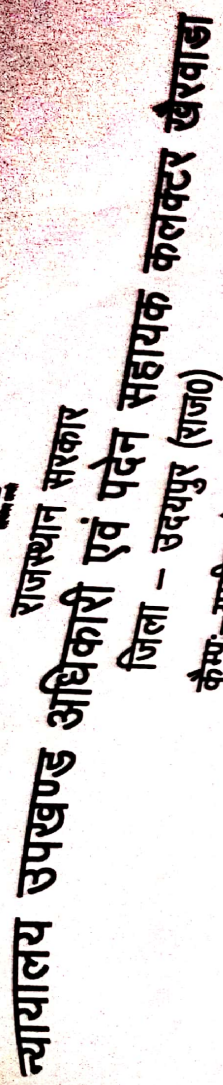 राजस्थान सरकार
न्यायालय उपखण्ड अधिकारी एवं पदेन सहायक कलक्टर खैरवाडा
जिला – उदयपुर (राज0)